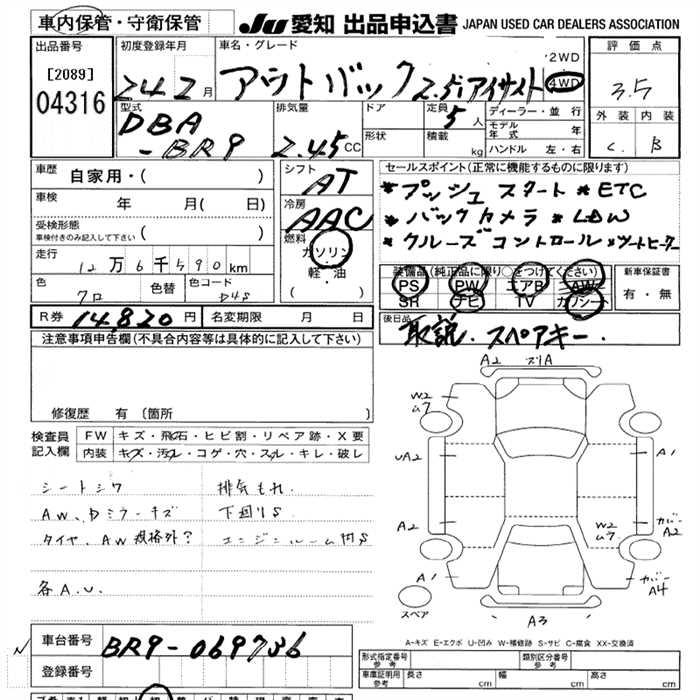 車内保管・守衛保管
JU 愛知 出品申込書 JAPAN USED CAR DEALERS ASSOCIATION
出品番号
[2089]
04316
初度登録年月
24 2 月
車名・グレード
アウトバック 2.5iアイサイト
2WD
4WD
評価点
3.5
外装 内装
C. B
型式
DBA
-BR9
排気量
2.45 CC
ドア
形状
定員
5 人
積載 kg
ディーラー・並行
モデル年式 年
ハンドル 左・右
車歴
自家用・( )
車検
年 月( 日)
受検形態
車検付きのみ記入して下さい
走行
12万6千590km
色
クロ
色替
色コード
D4S
シフト
AT
冷房
AAC
燃料
ガソリン
軽・油
( )
セールスポイント(正常に機能するものに限ります)
*プッシュスタート *ETC
*バックカメラ *LDW
*クルーズコントロール *シートヒーター
装備品(純正品に限り○をつけてください)
PS PW エアB AW
SR ナビ TV カワシート
新車保証書
有・無
R券 14,820 円
名変期限 月 日
後日品
取説.スペアキー.
注意事項申告欄(不具合内容等は具体的に記入して下さい)
修復歴 有(箇所 )
検査員
記入欄
FW キズ・飛石・ヒビ割・リペア跡・X要
内装 キズ・汚レ・コゲ・穴・スレ・キレ・破レ
シートシワ
AW、Dミラーキズ
タイヤ、AW規格外?
各A.U.
排気もれ.
下廻りS
エンジンルーム内S
A2 ズリA
W2
ム7
UA2
A2
A1
A1
W2
ム7
カバー
A2
カバー
A4
A3
スペア
A-キズ E-エクボ U-凹み W-補修跡 S-サビ C-腐食 XX-交換済
車台番号 BR9-069736
登録番号
形式指定番号
参考
類別区分番号
参考
車庫証明用
参考
長さ cm
幅 cm
高さ cm